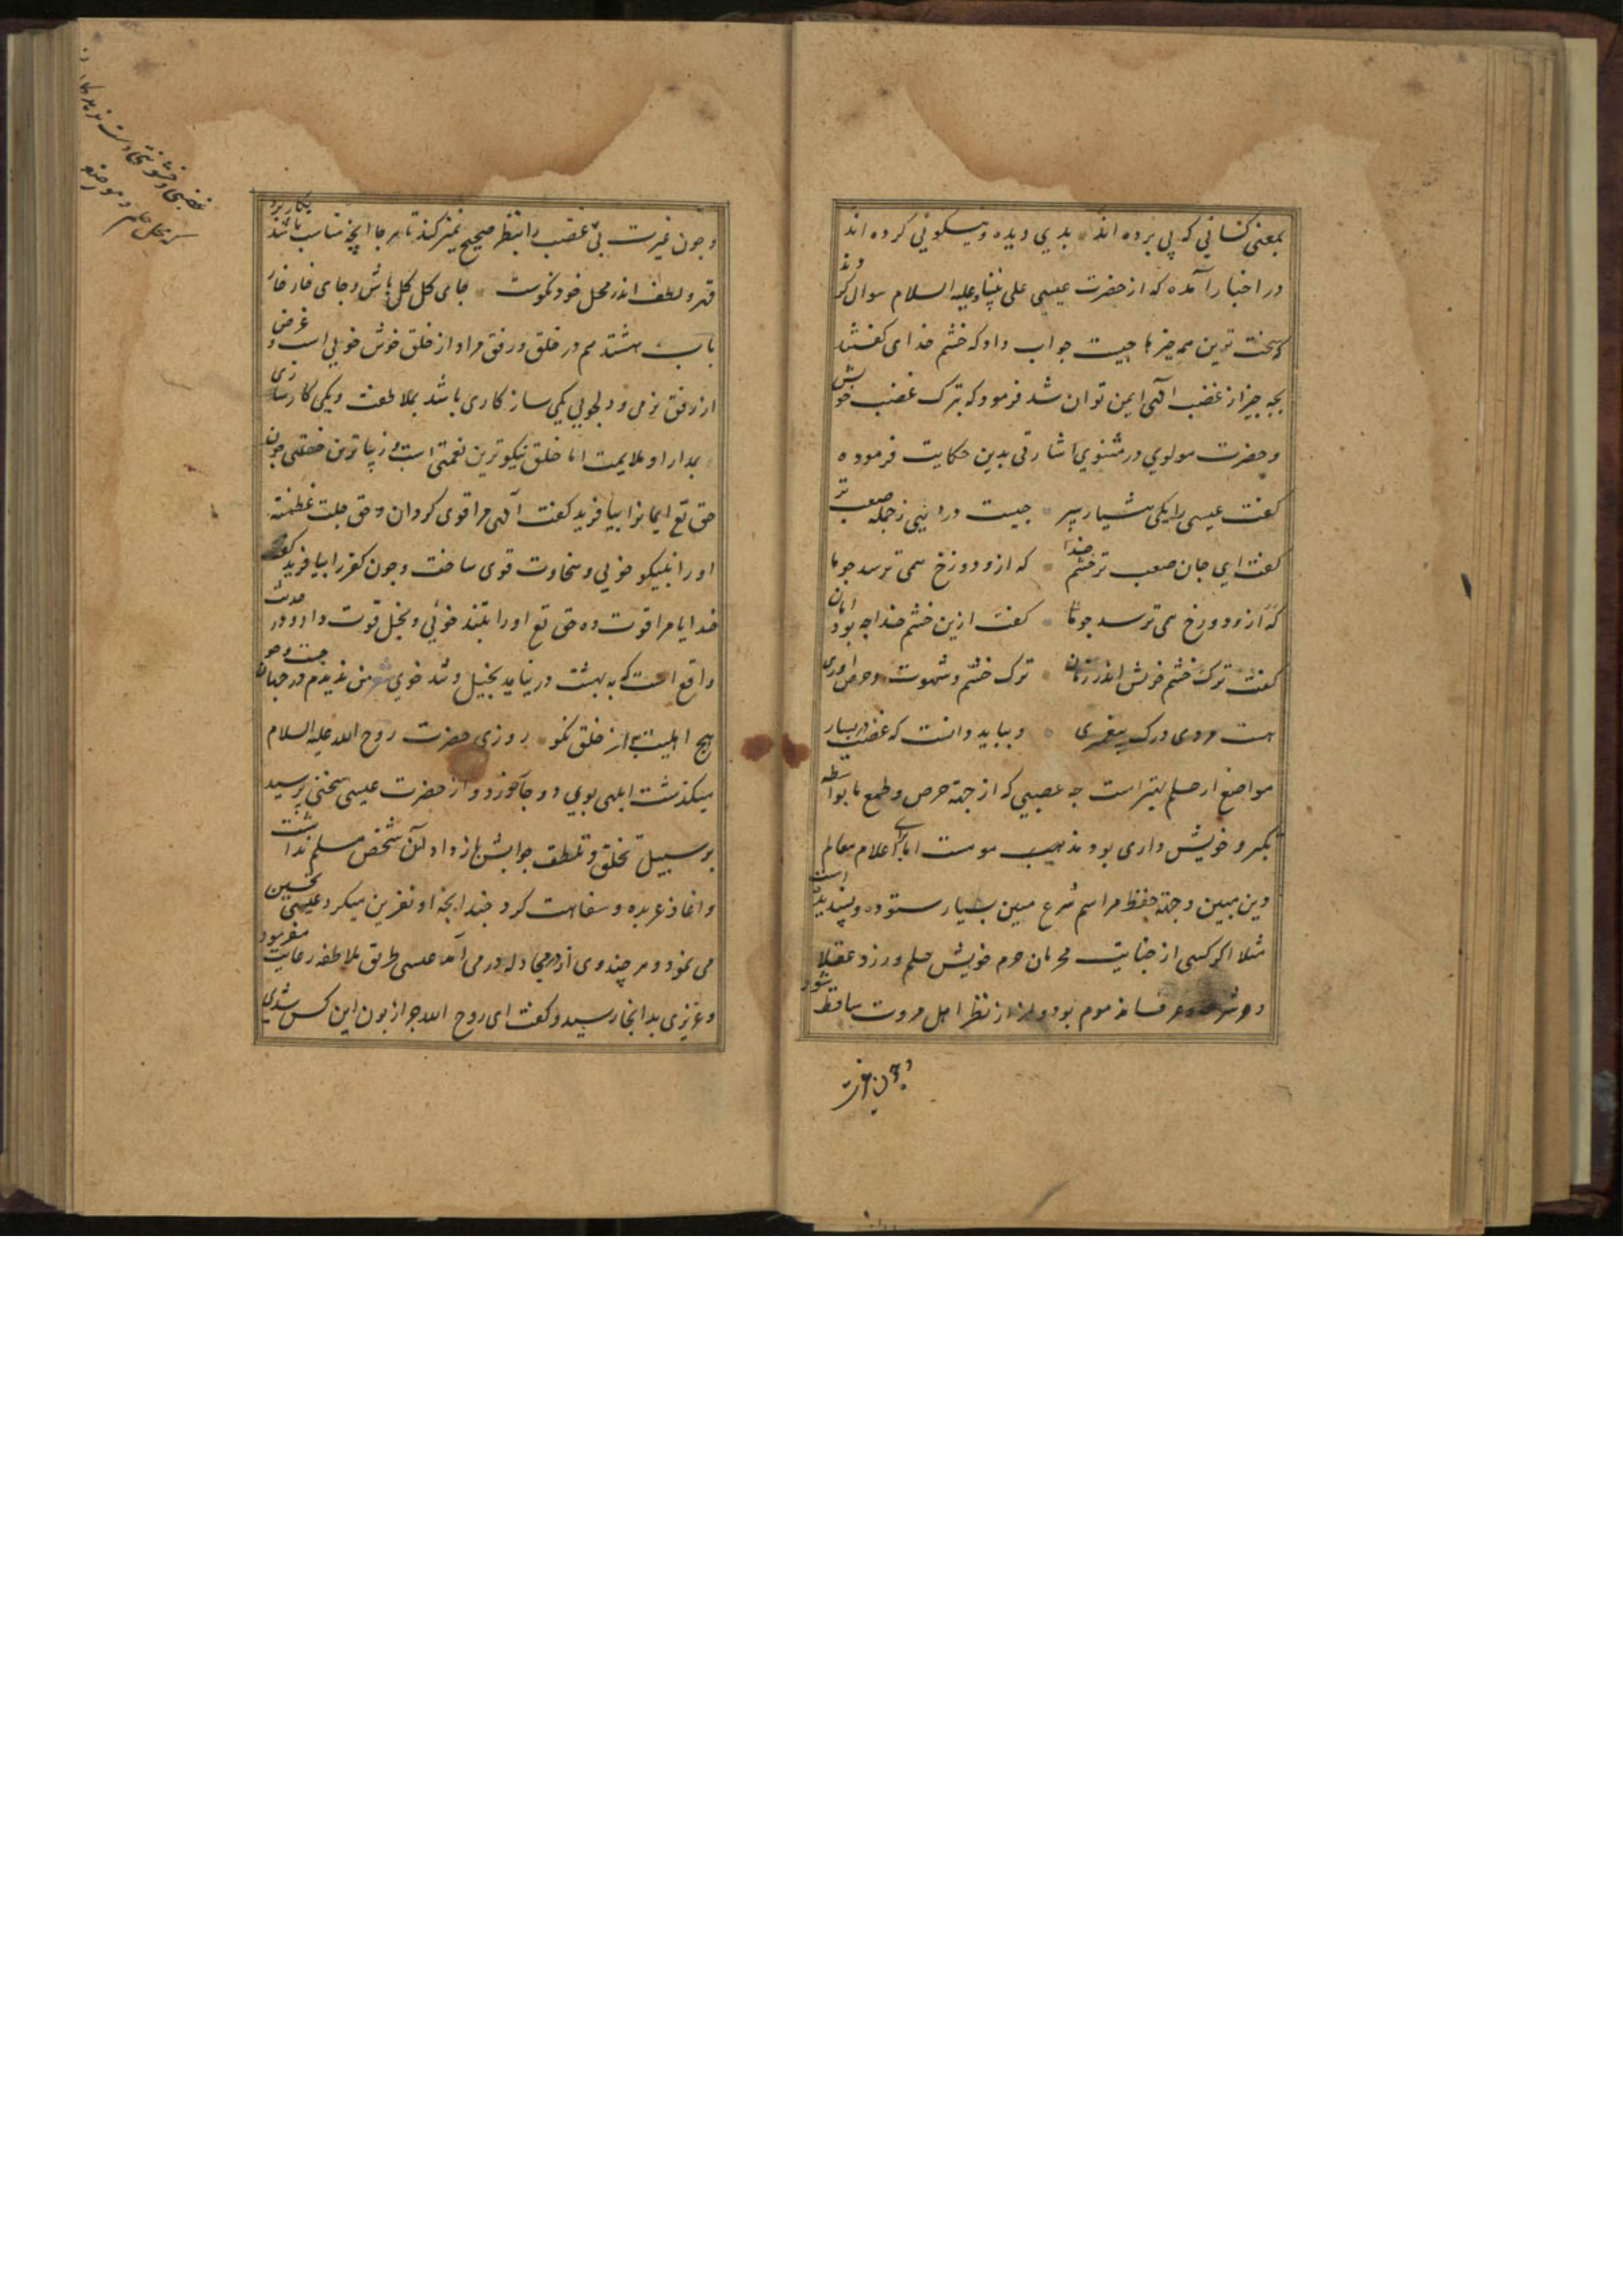 بمعنی کسانی که پی برده اند بدی دیده و نیکویی کرده اند
در اخبار آمده که از حضرت عیسی علی نبینا و علیه السلام سوال کردند
که سخت ترین همه چیزها چیست جواب داد که خشم خدای گفتند
بچه چیز از غضب آلهی ایمن توان شد فرمود که بترک غضب خویش
و حضرت مولوی در مثنوی اشارتی بدین حکایت فرموده
گفت عیسی را یکی هشیار سر چیست در هستی ز جمله صعب تر
گفت ای جان صعب تر خشم خدا که ازو دوزخ همی ترسد چو ما
که ازو دوزخ همی ترسد چو ما گفت ازین خشم خدا چه بود امان
گفت ترک خشم خویش اندر زمان ترک خشم و شهوت و حرص آوری
هست مردی و رگ پیغمبری و بباید دانست که غضب در بسیار
مواضع از حلم بهتر است چه غضبی که از جهة حرص و طمع یا بواسطه
تکبر و خویش داری بود مذهب است اما برای اعلام معالم
دین مبین و جهة حفظ مراسم شرع مبین بسیار ستوده و پسندیده است
مثلا اگر کسی از جنایت محرمان حرم خویش حلم ورزد عقلا
و شرعا و عرفا مذموم بود و از نظر اهل مروت ساقط شود
و چون غیرت
و چون غیرت بی غضب را بنظر صحیح تمیز کند تا هر جا آنچه مناسب باشد بکار برد
قهر و لطف اندر محل خود نکوست جای گل گل باش و جای خار خار
باب هشتدهم در خلق و رفق مراد از خلق خوش خویی است و غرض
از رفق نرمی و دلجویی یکی سازکاری باشد بملاطفت و یکی کارسازی
بمدارا و ملایمت اما خلق نیکوترین نعمتی است و زیباترین خصلتی چون
حق تع ایمانرا بیافرید گفت آلهی مرا قوی گردان و حق جلت عظمته
او را بنیکو خویی و سخاوت قوی ساخت و چون کفر را بیافرید گفت
خدایا مرا قوت ده حق تع او را بتند خوئی و بخل قوت داد و در حدیث
واقع است که به بهشت در نیاید بخیل و تند خوی شعر من ندیدم در جهان جست و جو
هیچ اهلیت به از خلق نکو روزی حضرت روح الله علیه السلام
میگذشت ابلهی بوی دو چار خورد و از حضرت عیسی سخنی پرسید
بر سبیل تخلق و تلطف جوابش باز داد آن شخص مسلم نداشت
و آغاز عربده و سفاهت کرد چندانچه او نفرین میکرد عیسی تحسین
می نمود و هر چند وی از در مجادله در می آمد عیسی طریق ملاطفه رعایت میفرمود
و عزیزی بدانجا رسید و گفت ای روح الله چرا زبون این کس شدی